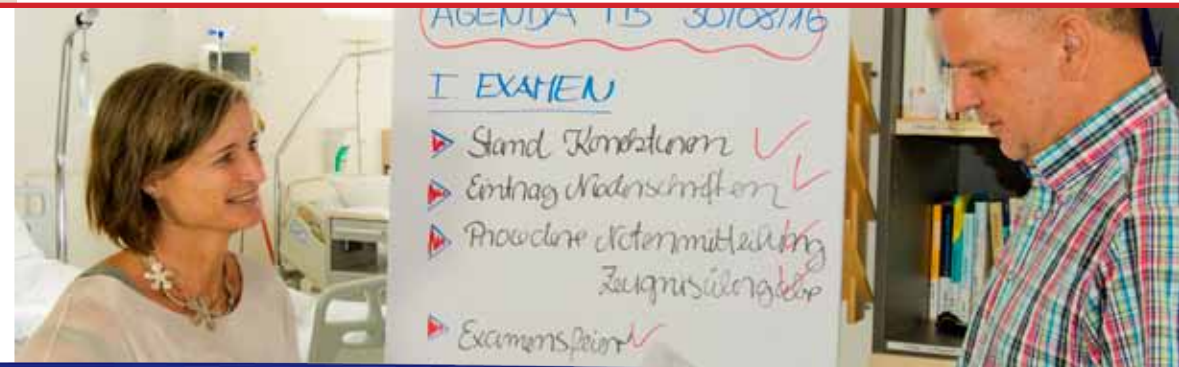 AGENDA TB 30/08/16
I EXAMEN
Stand Korrekturen ✓
Eintrag Niederschriften ✓
Procedere Notenmitteilung
Zeugnisübergabe
Examensfeier ✓